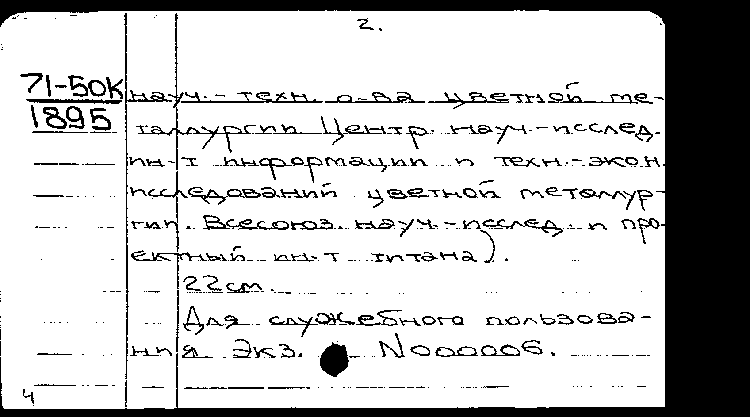 2.
71-50К науч.-техн. о-ва цветной ме-
1895 таллургии Центр. науч.-исслед.
ин-т информации и техн.-экон.
исследований цветной металлур-
гии. Всесоюз. науч.-исслед. и про-
ектный ин-т титана).
22см.
Для служебного пользова-
ния Экз. N000006.
4